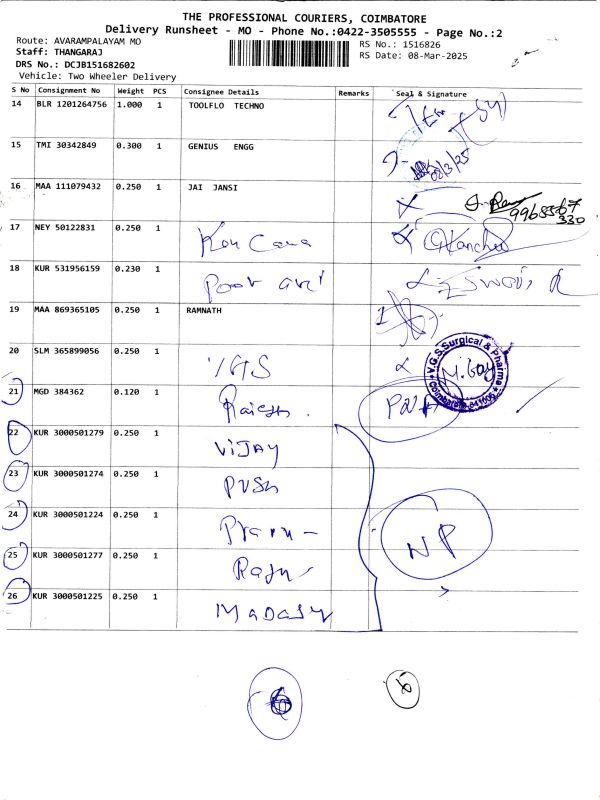 THE PROFESSIONAL COURIERS, COIMBATORE
Delivery Runsheet - MO - Phone No.:0422-3505555 - Page No.:2
Route: AVARAMPALAYAM MO
RS No.: 1516826
Staff: THANGARAJ
RS Date: 08-Mar-2025
DRS No.: DCJB151682602
Vehicle: Two Wheeler Delivery
S No Consignment No Weight PCS Consignee Details Remarks Seal & Signature
14 BLR 1201264756 1.000 1 TOOLFLO TECHNO
15 TMI 30342849 0.300 1 GENIUS ENGG
08/3/25
16 MAA 111079432 0.250 1 JAI JANSI
17 NEY 50122831 0.250 1
18 KUR 531956159 0.230 1
19 MAA 869365105 0.250 1 RAMNATH
20 SLM 365899056 0.250 1 VGS
V.G.S.Surgical & Pharma
Coimbatore-641006
21 MGD 384362 0.120 1 Rajesh
22 KUR 3000501279 0.250 1 VIJAY
23 KUR 3000501274 0.250 1
24 KUR 3000501224 0.250 1
25 KUR 3000501277 0.250 1
26 KUR 3000501225 0.250 1
NP